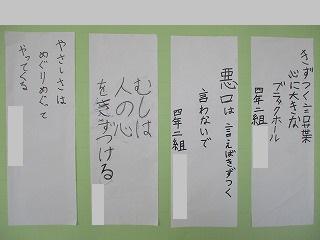 きずつく言葉
心に大きな
ブラックホール
四年二組
悪口は言えばきずつく
言わないで
四年二組
むしは
人の心
をきずつける
やさしさは
めぐりめぐって
やってくる